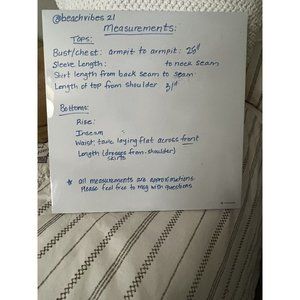 @beachvibes 21
Measurements:
Tops:
Bust/chest: armpit to armpit: 28"
Sleeve Length: to neck seam
Shirt length from back seam to seam
Length of top from shoulder 31"
Bottoms:
Rise:
Inseam
Waist: taking laying flat across front
Length (dresses from shoulder)
skirts
* all measurements are approximations
Please feel free to msg with questions